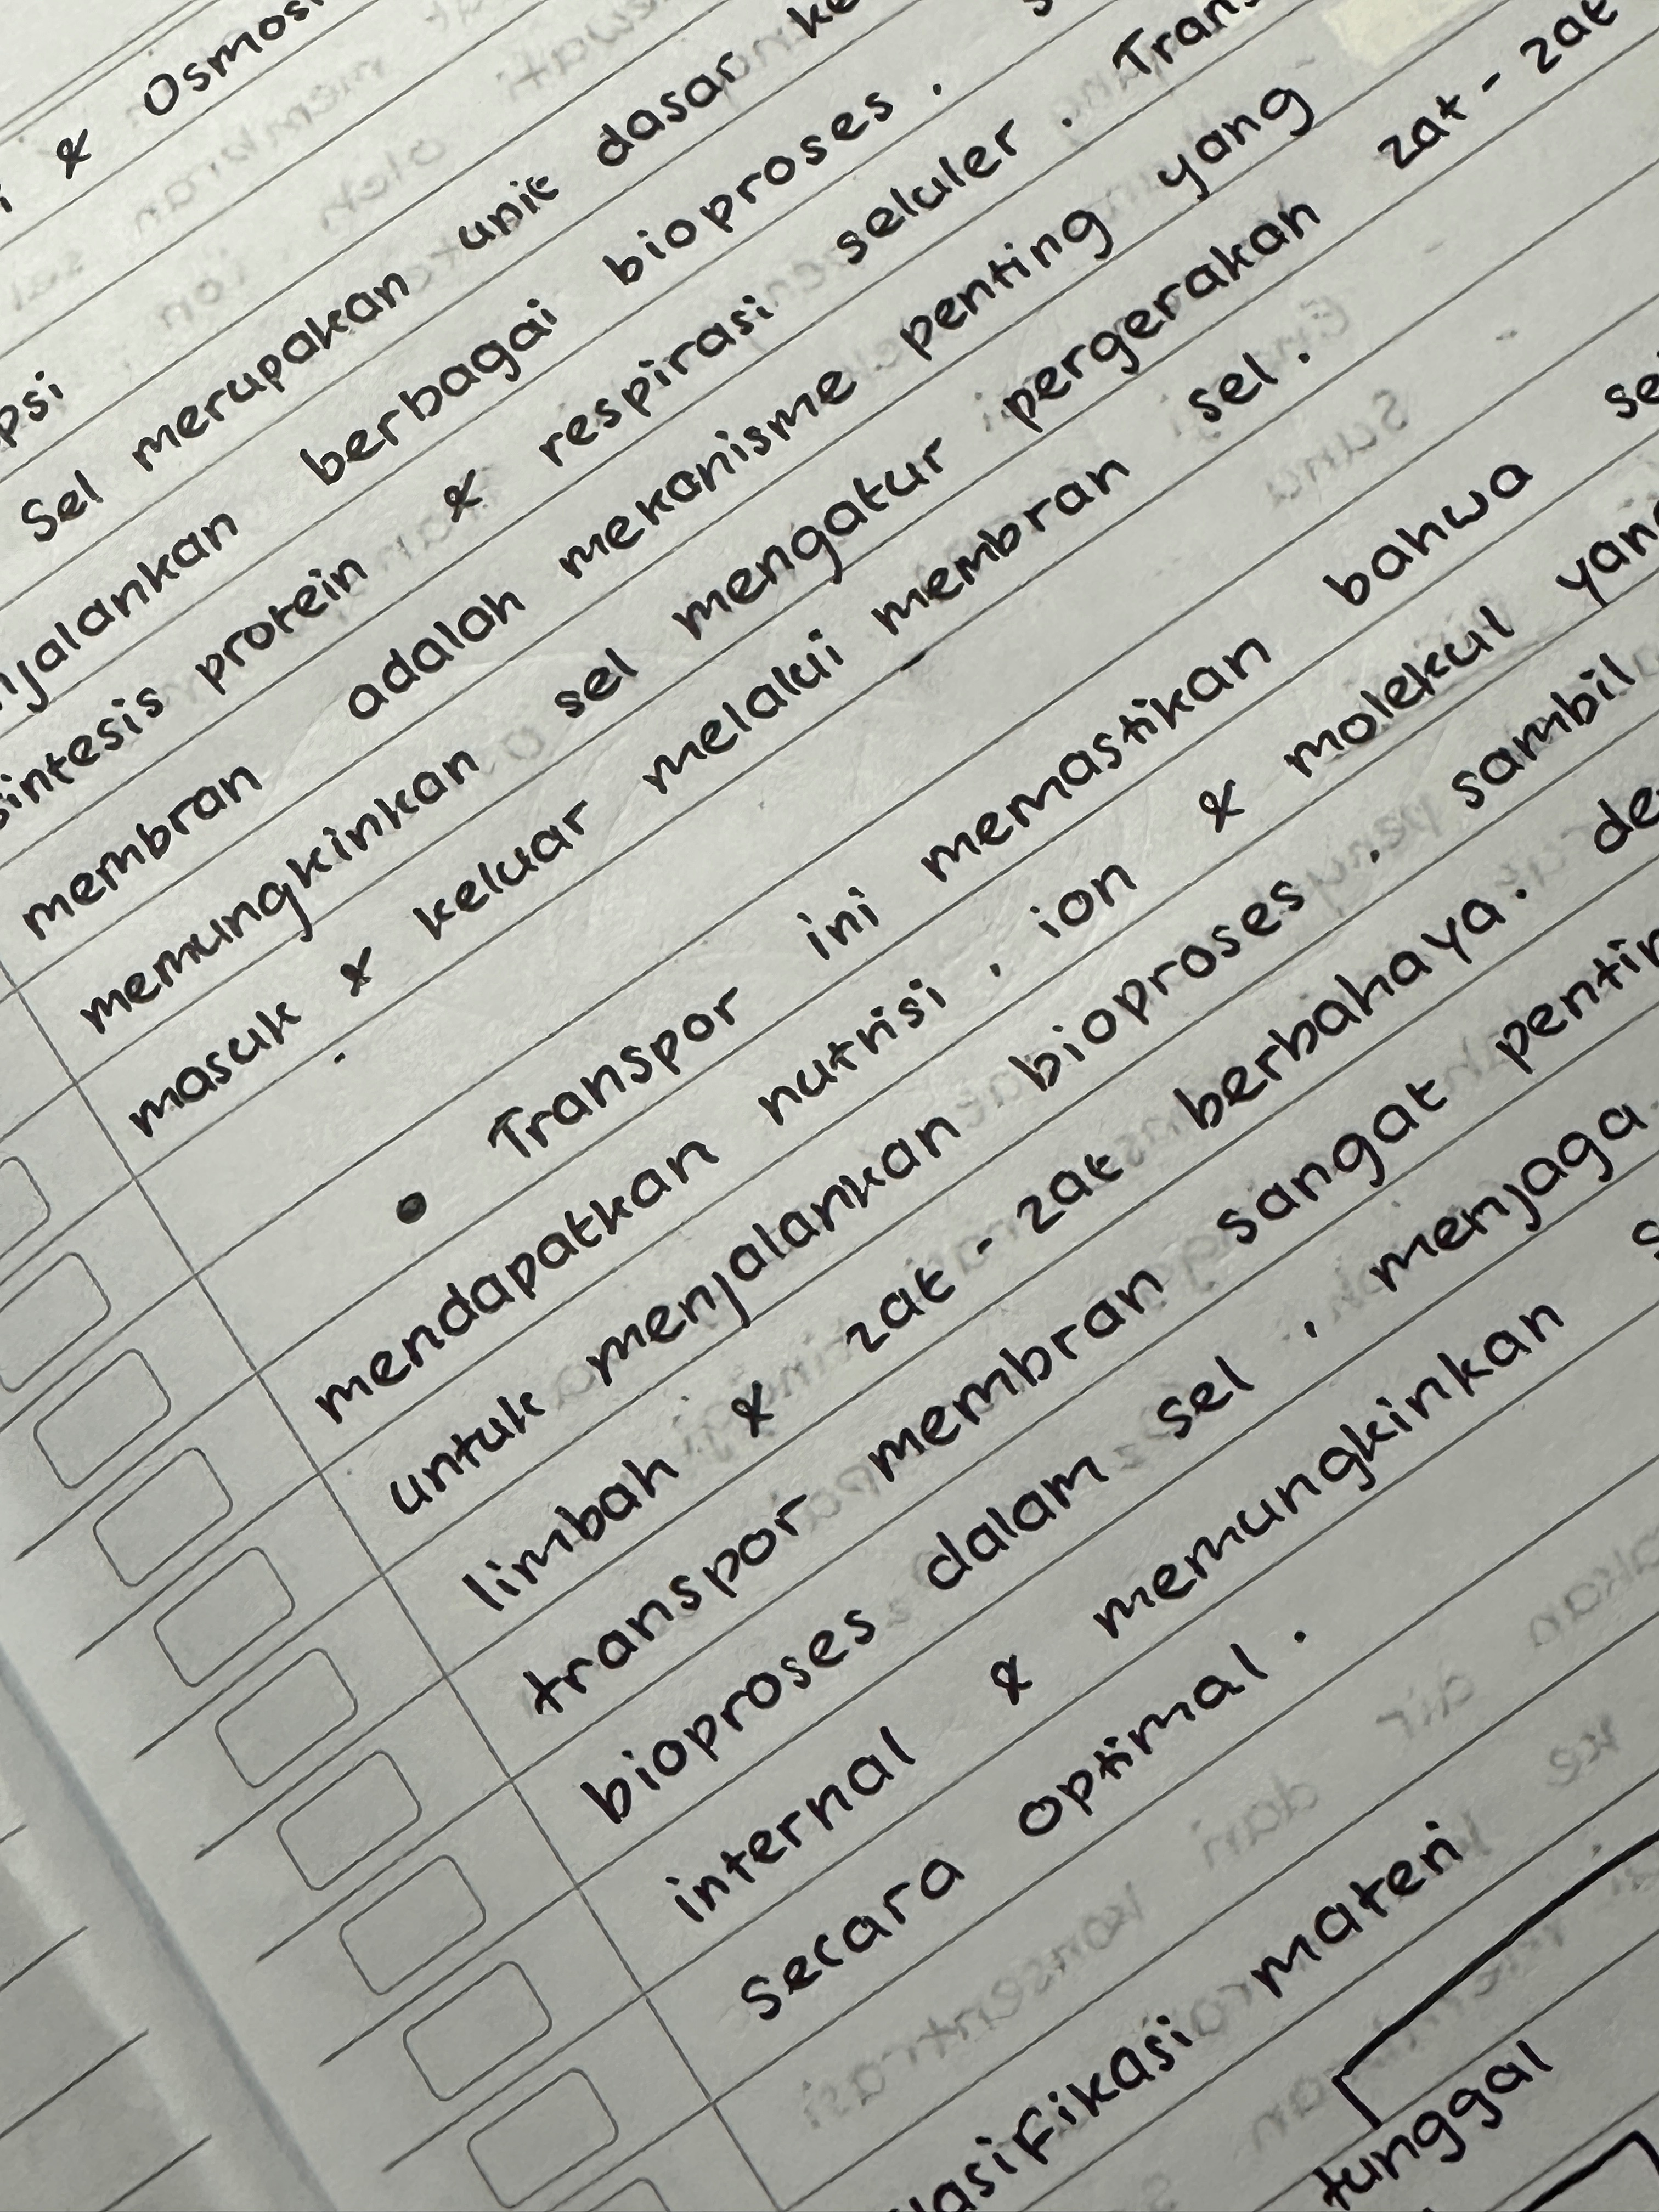 & Osmos
psi
Sel merupakan unit dasar ke
njalankan berbagai bioproses. s
sintesis protein & respirasi seluler. Trans
membran adalah mekanisme penting yang
memungkinkan sel mengatur pergerakan zat-zat
masuk & keluar melalui membran sel.
• Transpor ini memastikan bahwa se
mendapatkan nutrisi, ion & molekul yang
untuk menjalankan bioproses, sambil
limbah & zat-zat berbahaya. de
transpor membran sangat pentin
bioproses dalam sel, menjaga
internal & memungkinkan s
secara optimal.
asifikasi materi
tunggal